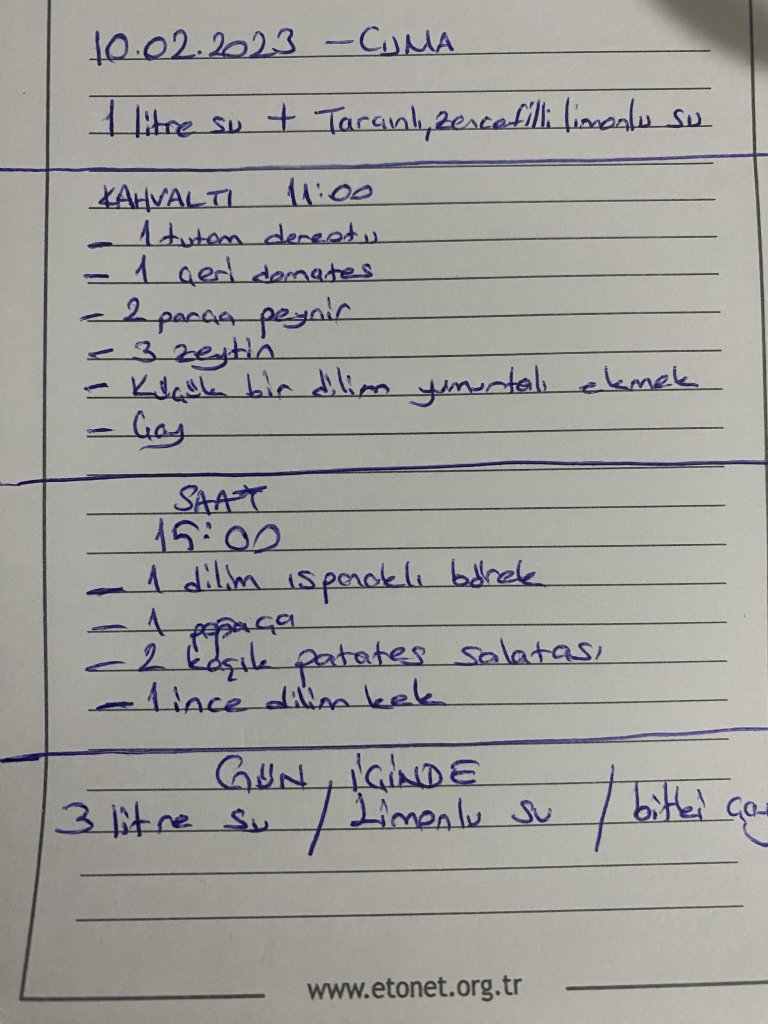 10.02.2023 - CUMA
1 litre su + Tarçınlı, zencefilli limonlu su
KAHVALTI 11:00
- 1 tutam dereotu
- 1 çeri domates
- 2 parça peynir
- 3 zeytin
- Küçük bir dilim yumurtalı ekmek
- Çay
SAAT
15:00
- 1 dilim ıspanaklı börek
- 1 poğaça
- 2 kaşık patates salatası
- 1 ince dilim kek
GÜN İÇİNDE
3 litre su / Limonlu su / bitki çay
www.etonet.org.tr